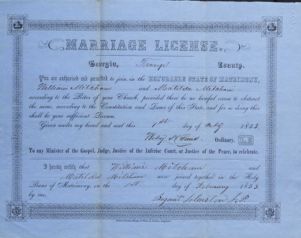 MARRIAGE LICENSE.
Georgia, Troup County.
You are authorized and permitted to join in the HONORABLE STATE OF MATRIMONY,
William Mitcham and Matilda Mitcham
according to the Rites of your Church, provided there be no lawful cause to obstruct
the same, according to the Constitution and Laws of this State, and for so doing this
shall be your sufficient License.
Given under my hand and seal this 1st day of Feby 1853
Ordinary.
To any Minister of the Gospel, Judge, Justice of the Inferior Court, or Justice of the Peace, to celebrate.
I hereby certify that William Mitcham and
Matilda Mitcham were joined together in the Holy
Bans of Matrimony, on the 1st day of February 1853
by me, Johnston J.P.